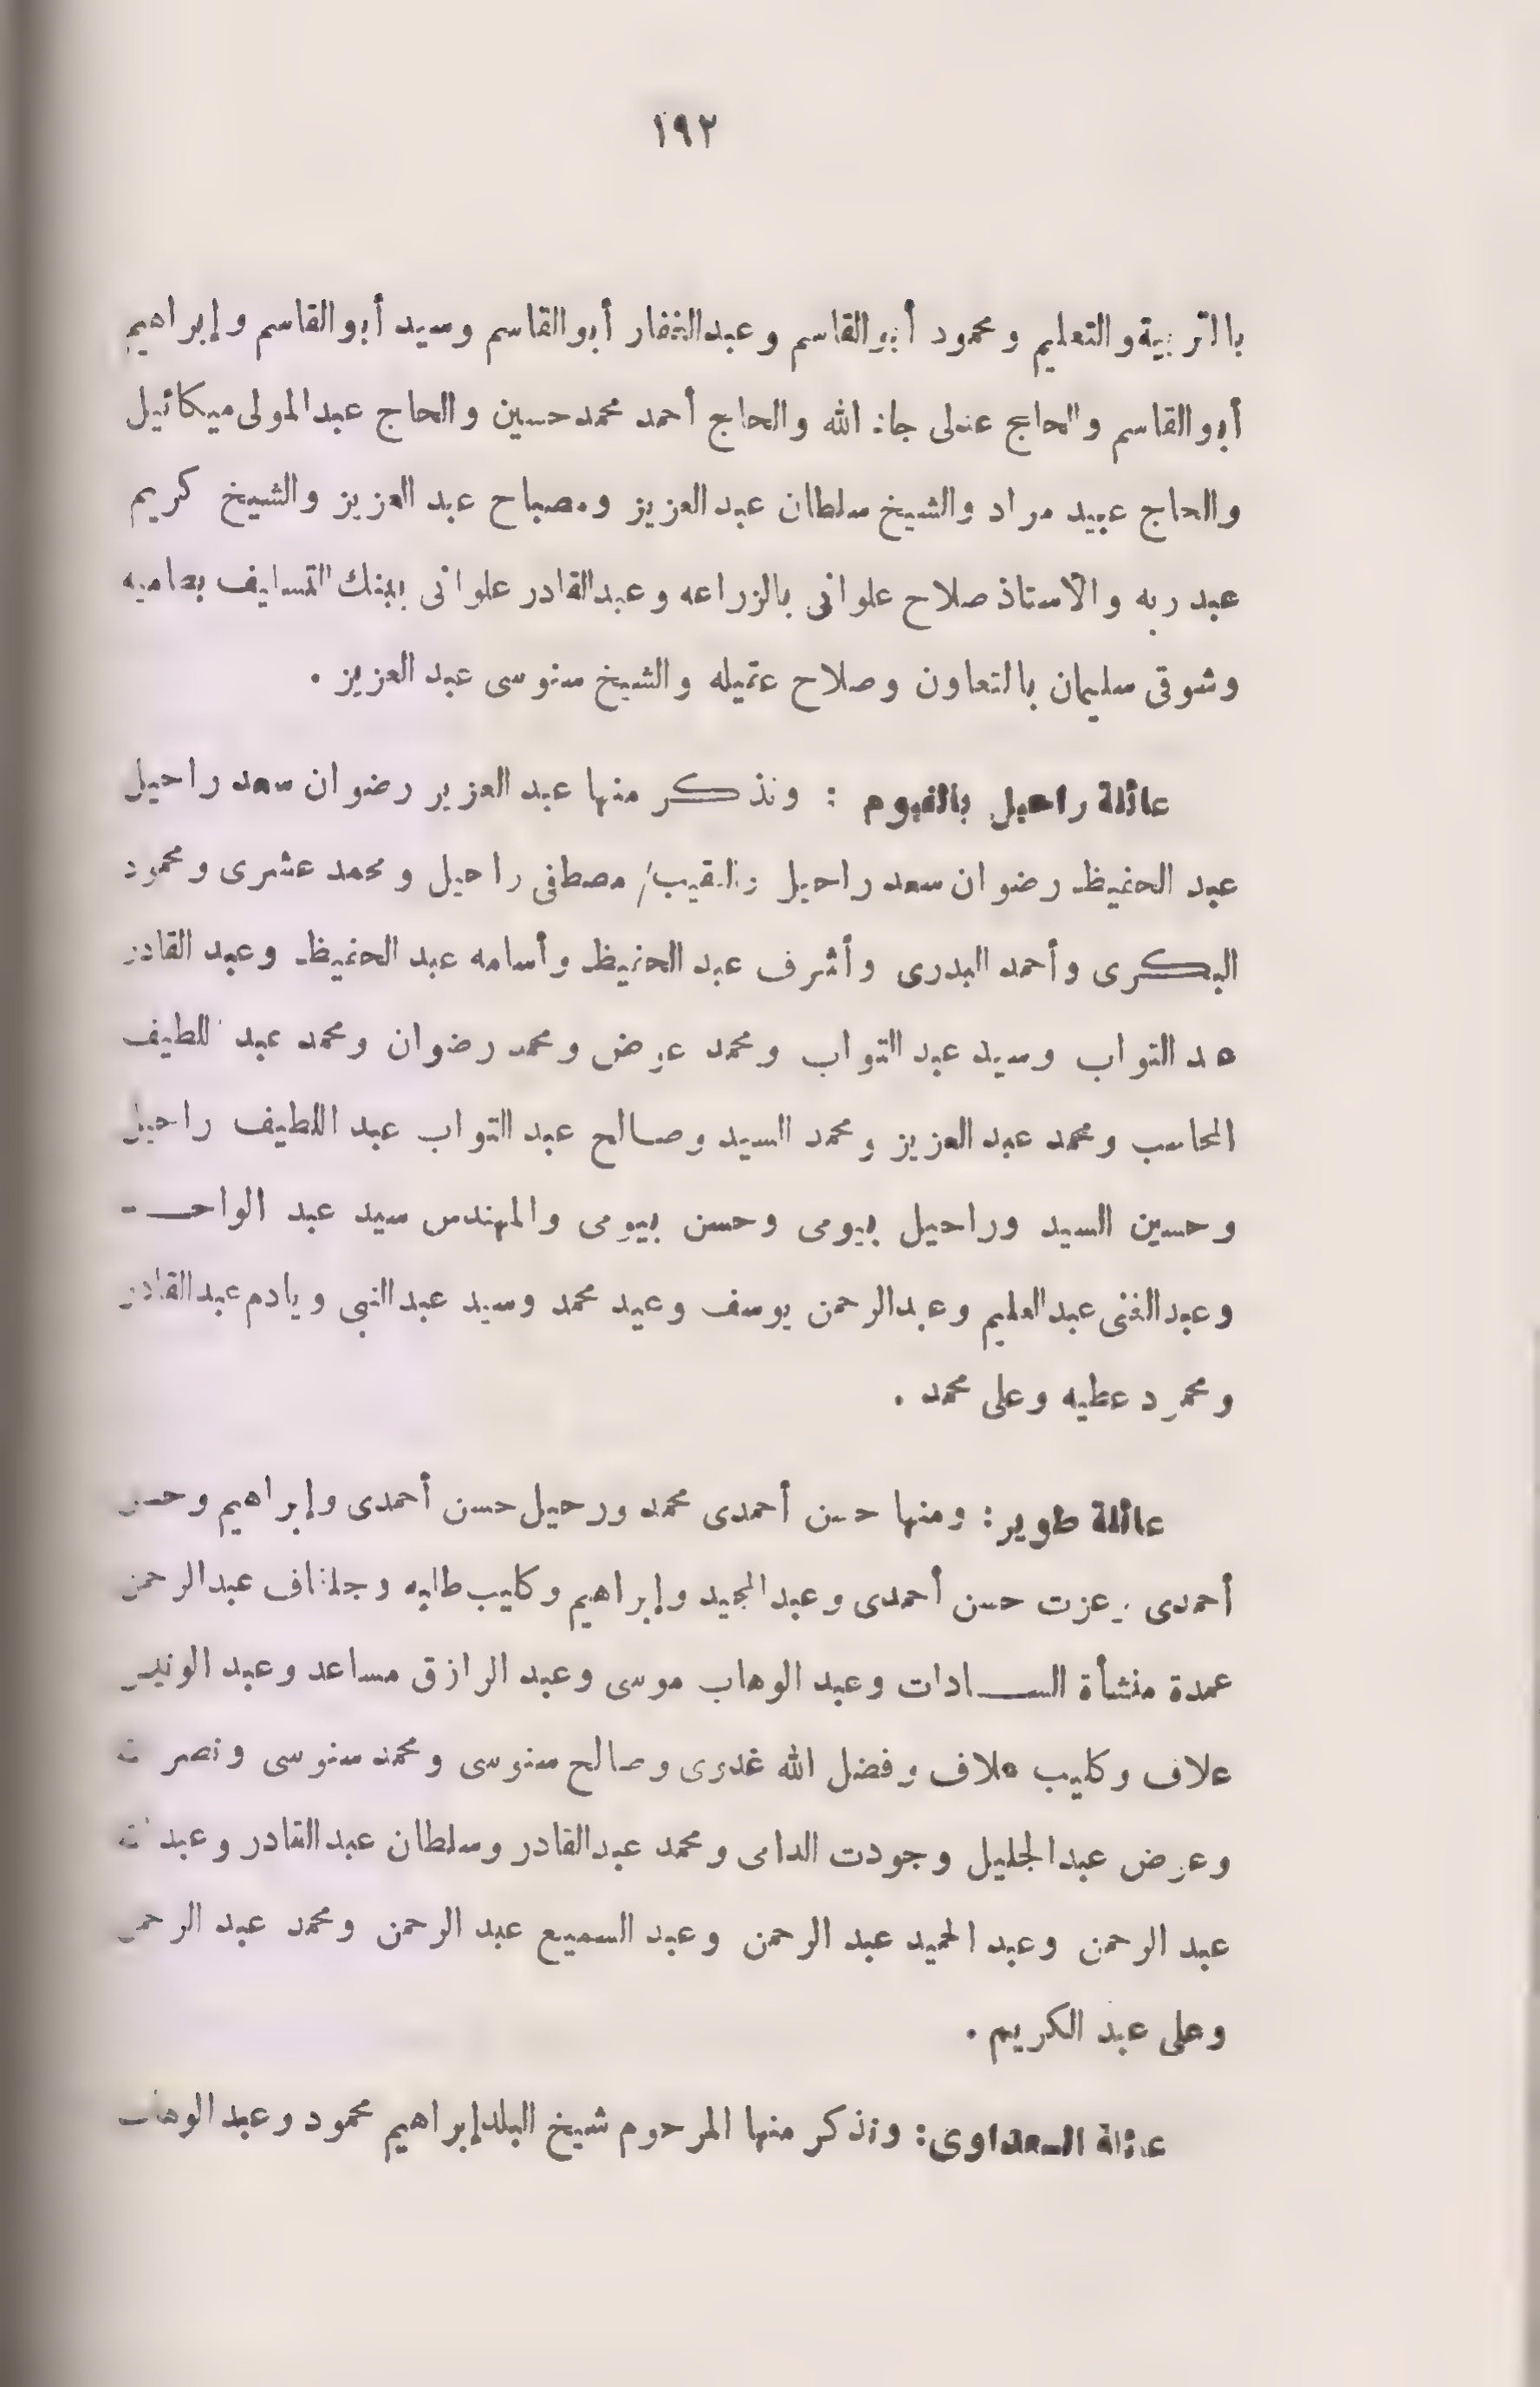 ١٩٢
بالتربية والتعليم ومحمود أبو القاسم وعبد الغفار أبو القاسم وسيد أبو القاسم وإبراهيم
أبو القاسم والحاج على جاد الله والحاج أحمد محمد حسين والحاج عبد المولى ميكائيل
والحاج عبيد مراد والشيخ سلطان عبد العزيز ومصباح عبد العزيز والشيخ كريم
عبد ربه والأستاذ صلاح علوانى بالزراعه وعبد القادر علوانى ببنك التسليف بعاميه
وشوقى سليمان بالتعاون وصلاح عتميله والشيخ سنوسى عبد العزيز .
عائلة راحيل بالفيوم : ونذكر منها عبد العزيز رضوان سعد راحيل
عبد الحفيظ رضوان سعد راحيل والنقيب/ مصطفى راحيل ومحمد عشرى ومحمود
البكرى وأحمد البدرى وأشرف عبد الحفيظ وأسامه عبد الحفيظ وعبد القادر
عبد التواب وسيد عبد التواب ومحمد عوض ومحمد رضوان ومحمد عبد اللطيف
المحاسب ومحمد عبد العزيز ومحمد السيد وصالح عبد التواب عبد اللطيف راحيل
وحسين السيد وراحيل بيومى وحسن بيومى والمهندس سيد عبد الواحد
وعبد الغنى عبد العليم وعبد الرحمن يوسف وعيد محمد وسيد عبد النبى ويادم عبد القادر
ومحمود عطيه وعلى محمد .
عائلة طوير : ومنها حسن أحمدى محمد ورحيل حسن أحمدى وإبراهيم وحسن
أحمدى وعزت حسن أحمدى وعبد المجيد وإبراهيم وكليب طايه وجلغاف عبد الرحمن
عمدة منشأة السادات وعبد الوهاب موسى وعبد الرازق مساعد وعبد الونيس
علاف وكليب علاف وفضل الله غدوى وصالح سنوسى ومحمد سنوسى ونصر
وعوض عبد الجليل وجودت الدامى ومحمد عبد القادر وسلطان عبد القادر وعبد
عبد الرحمن وعبد الحميد عبد الرحمن وعبد السميع عبد الرحمن ومحمد عبد الرحمن
وعلى عبد الكريم .
عائلة السعداوى : ونذكر منها المرحوم شيخ البلد إبراهيم محمود وعبد الوهاب